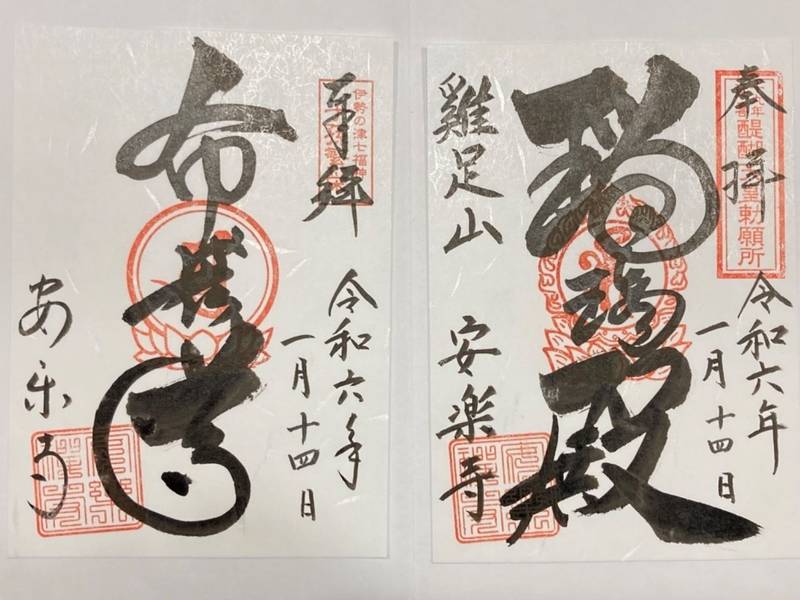 奉拝
醍醐天皇勅願所
令和六年
一月十四日
瑠璃殿
雞足山 安楽寺
奉拝
伊勢の津七福神
令和六年
一月十四日
布袋尊
安楽寺